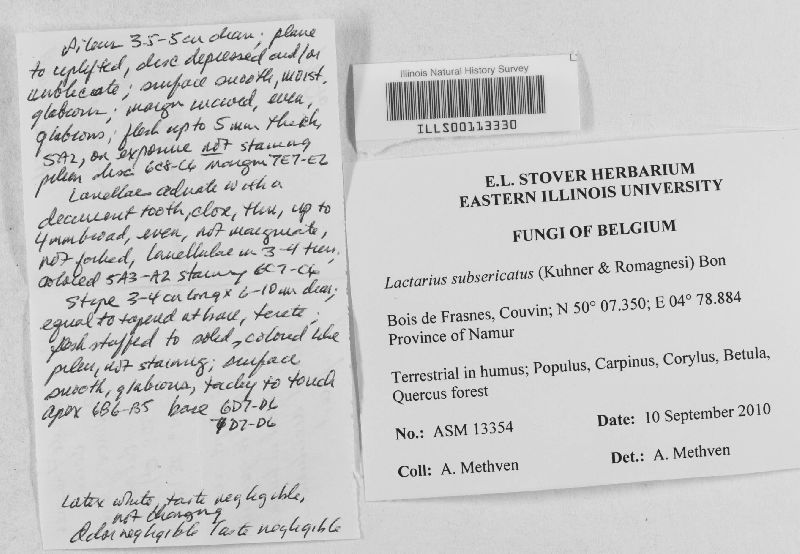 Pileus 3.5-5 cm diam; plane
to uplifted, disc depressed and/or
umbilicate; surface smooth, moist,
glabrous; margin incurved, even,
glabrous; flesh up to 5 mm thick,
5A2, on exposure not staining
pileus disc 6C8-C6 margin 7E7-E2
Lamellae adnate with a
decurrent tooth, close, thin, up to
4mm broad, even, not marginate,
not forked, lamellulae in 3-4 tiers,
colored 5A3-A2 staining 6C7-C6
Stipe 3-4 cm long x 6-10 mm diam;
equal to tapered at base, terete;
flesh stuffed to solid, colored like
pileus, not staining; surface
smooth, glabrous, tacky to touch
apex 6B6-B5 base 6D7-D6
7D7-D6
Latex white, taste negligible,
not changing
Odor negligible Taste negligible
Illinois Natural History Survey
ILLS00113330
E.L. STOVER HERBARIUM
EASTERN ILLINOIS UNIVERSITY
FUNGI OF BELGIUM
Lactarius subsericatus (Kuhner & Romagnesi) Bon
Bois de Frasnes, Couvin; N 50° 07.350; E 04° 78.884
Province of Namur
Terrestrial in humus; Populus, Carpinus, Corylus, Betula,
Quercus forest
No.: ASM 13354 Date: 10 September 2010
Coll: A. Methven Det.: A. Methven